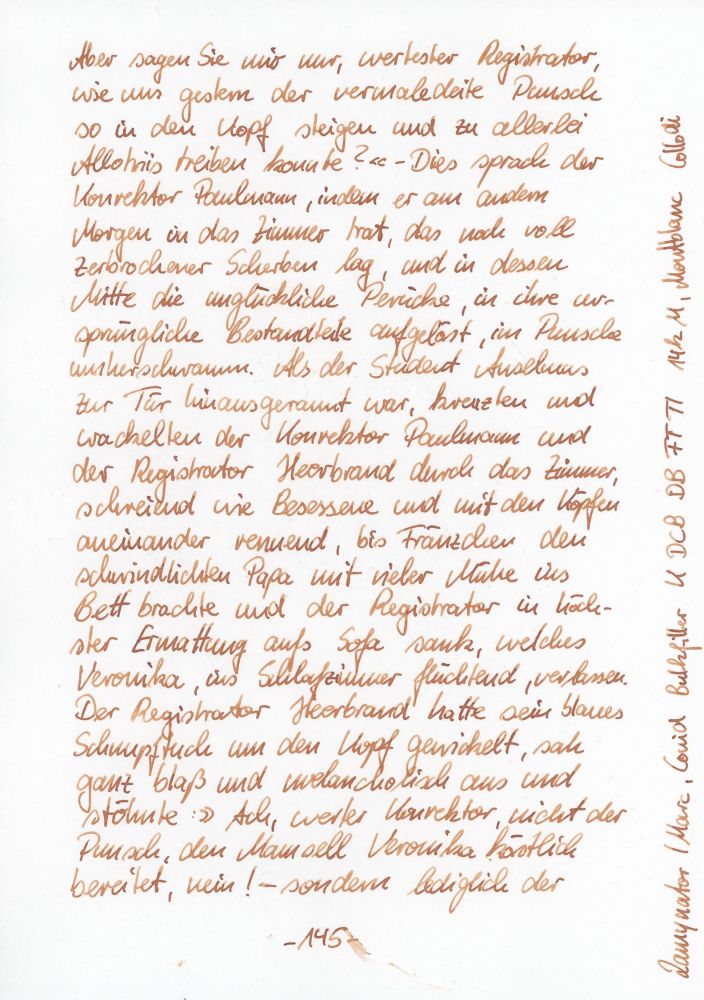 Aber sagen Sie mir nur, wertester Registrator,
wie uns gestern der vermaledeite Punsch
so in den Kopf steigen und zu allerlei
Allotriis treiben konnte?«« – Dies sprach der
Konrektor Paulmann, indem er am andern
Morgen in das Zimmer trat, das noch voll
zerbrochener Scherben lag, und in dessen
Mitte die unglückliche Perücke, in ihre ur-
sprüngliche Bestandteile aufgelöst, im Punsche
umherschwamm. Als der Student Anselmus
zur Tür hinausgerannt war, kreuzten und
wackelten der Konrektor Paulmann und
der Registrator Heerbrand durch das Zimmer,
schreiend wie Besessene und mit den Köpfen
aneinander rennend, bis Fränzchen den
schwindlichten Papa mit vieler Mühe ins
Bett brachte und der Registrator in höch-
ster Ermattung aufs Sofa sank, welches
Veronika, ins Schlafzimmer flüchtend, verlassen.
Der Registrator Heerbrand hatte sein blaues
Schnupftuch um den Kopf gewickelt, sah
ganz blaß und melancholisch aus und
stöhnte: »Ach, werter Konrektor, nicht der
Punsch, den Mamsell Veronika köstlich
bereitet, nein! – sondern lediglich der
-145-
(Marc, Conid Bulkfiller K DCB DB FT TI 14k M, Montblanc Collodi